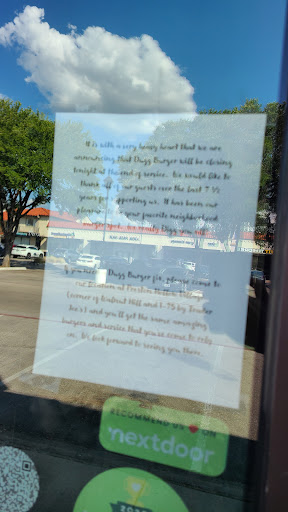 It is with a very heavy heart that we are
announcing that Dugg Burger will be closing
tonight at the end of service. We would like to
thank all of our guests over the last 7 ½
years for supporting us. It has been our
your favorite neighborhood
burger spot. We really Dugg you all.
Dugg Burger fix, please come to
our location at Preston Hollow
(corner of Walnut Hill and I-75 by Trader
Joe's) and you'll get the same amazing
burgers and service that you've come to
We look forward to seeing you there.
RECOMMEND US ON
nextdoor